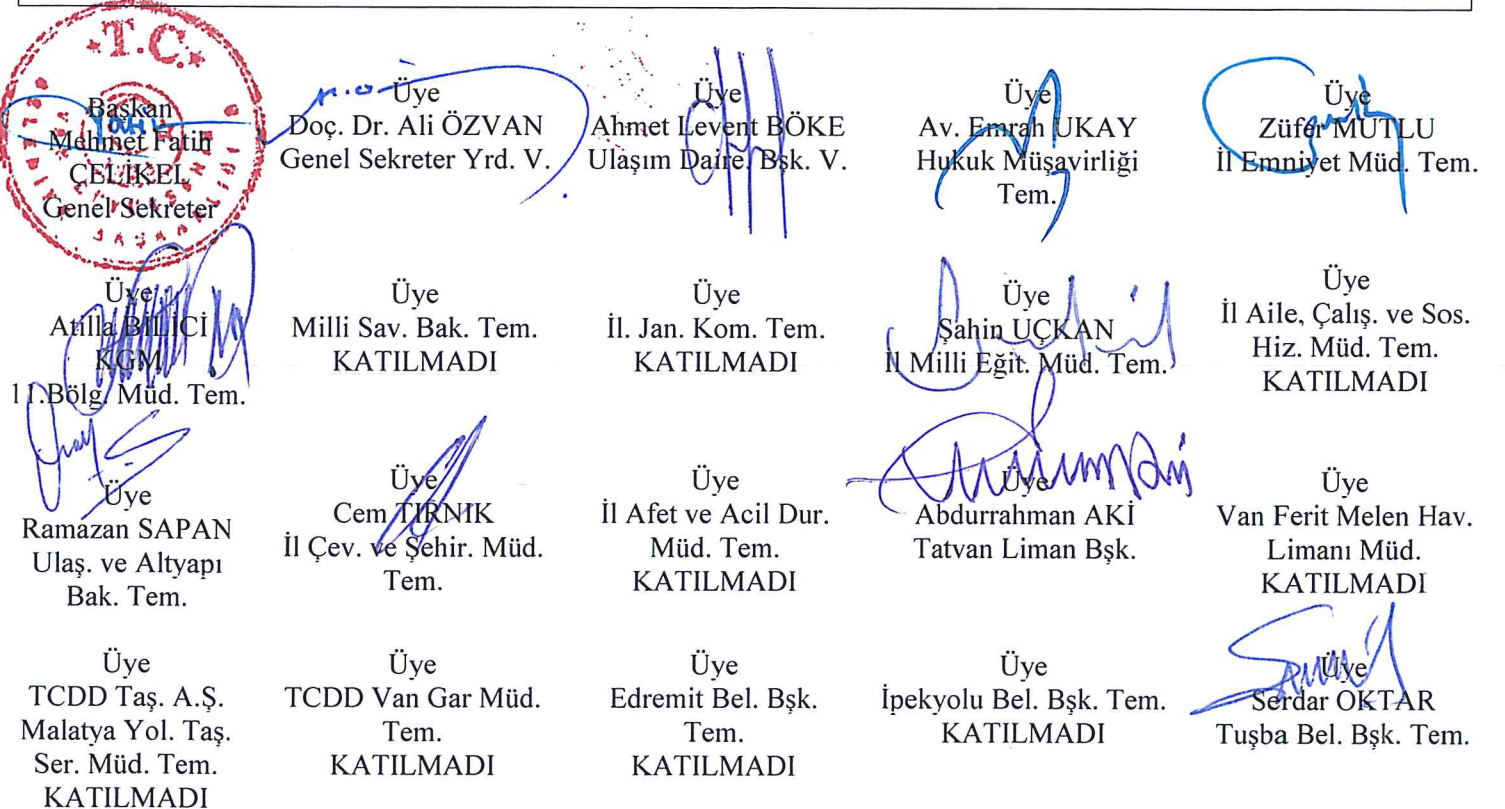 T.C.
Başkan
Mehmet Fatih
ÇELİKEL
Genel Sekreter
Üye
Doç. Dr. Ali ÖZVAN
Genel Sekreter Yrd. V.
Üye
Ahmet Levent BÖKE
Ulaşım Daire. Bşk. V.
Üye
Av. Emrah UKAY
Hukuk Müşavirliği
Tem.
Üye
Züfer MUTLU
İl Emniyet Müd. Tem.
Üye
Atilla BİLİCİ
KGM
11.Bölg. Müd. Tem.
Üye
Milli Sav. Bak. Tem.
KATILMADI
Üye
İl. Jan. Kom. Tem.
KATILMADI
Üye
Şahin UÇKAN
İl Milli Eğit. Müd. Tem.
Üye
İl Aile, Çalış. ve Sos.
Hiz. Müd. Tem.
KATILMADI
Üye
Ramazan SAPAN
Ulaş. ve Altyapı
Bak. Tem.
Üye
Cem TIRNIK
İl Çev. ve Şehir. Müd.
Tem.
Üye
İl Afet ve Acil Dur.
Müd. Tem.
KATILMADI
Üye
Abdurrahman AKİ
Tatvan Liman Bşk.
Üye
Van Ferit Melen Hav.
Limanı Müd.
KATILMADI
Üye
TCDD Taş. A.Ş.
Malatya Yol. Taş.
Ser. Müd. Tem.
KATILMADI
Üye
TCDD Van Gar Müd.
Tem.
KATILMADI
Üye
Edremit Bel. Bşk.
Tem.
KATILMADI
Üye
İpekyolu Bel. Bşk. Tem.
KATILMADI
Üye
Serdar OKTAR
Tuşba Bel. Bşk. Tem.